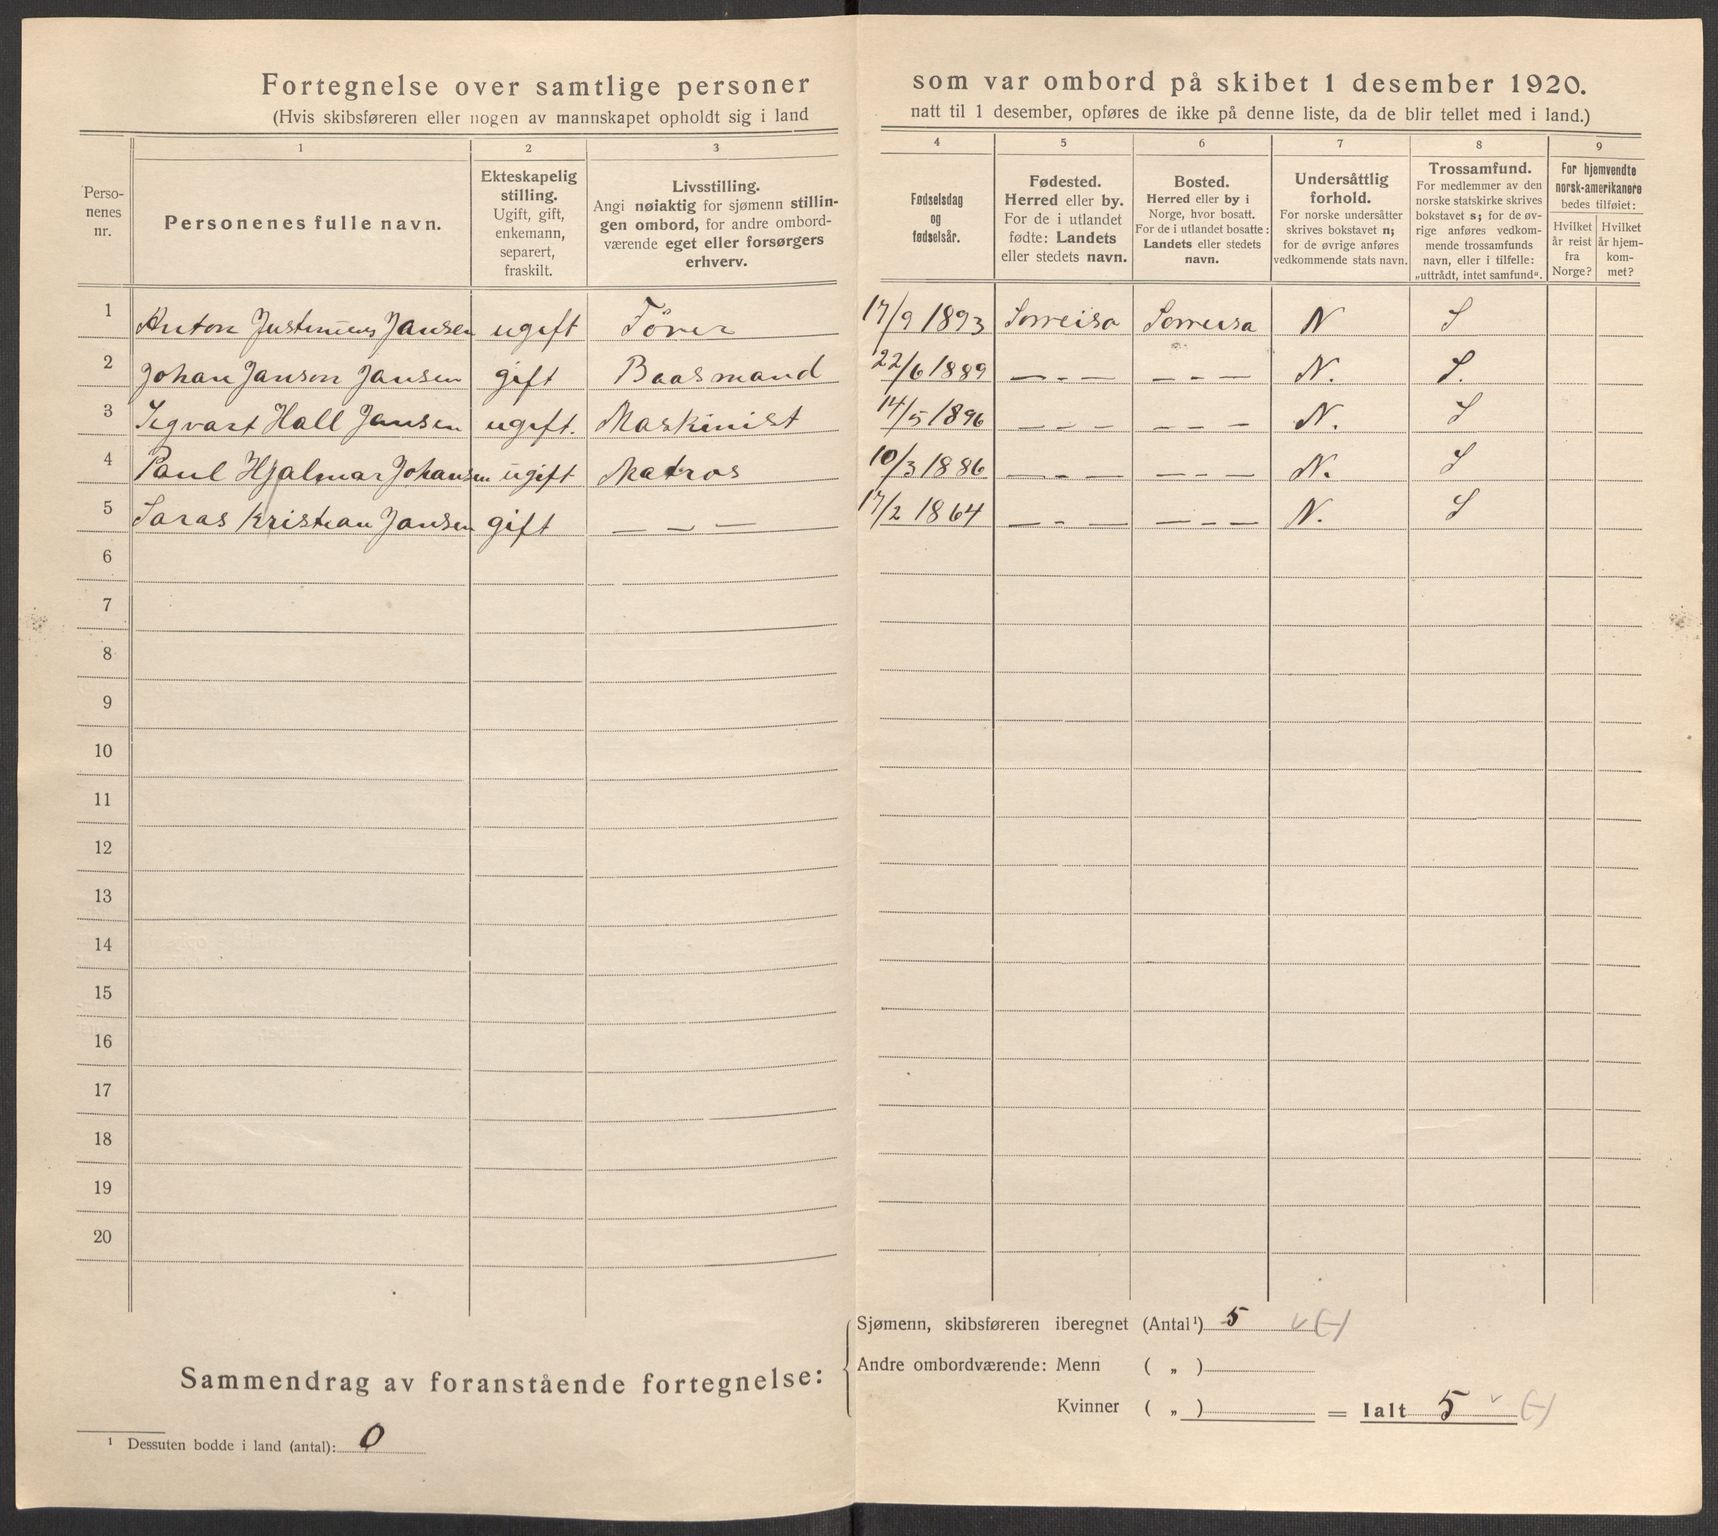 Fortegnelse over samtlige personer som var ombord på skibet 1 desember 1920.
(Hvis skibsføreren eller nogen av mannskapet opholdt sig i land natt til 1 desember, opføres de ikke på denne liste, da de blir tellet med i land.)
1 2 3 4 5 6 7 8 9
Personenes nr.
Personenes fulle navn.
Ekteskapelig stilling. Ugift, gift, enkemann, separert, fraskilt.
Livsstilling. Angi nøiaktig for sjømenn stillingen ombord, for andre ombordværende eget eller forsørgers erhverv.
Fødselsdag og fødselsår.
Fødested. Herred eller by. For de i utlandet fødte: Landets eller stedets navn.
Bosted. Herred eller by i Norge, hvor bosatt. For de i utlandet bosatte: Landets eller stedets navn.
Undersåttlig forhold. For norske undersåtter skrives bokstavet n; for de øvrige anføres vedkommende stats navn.
Trossamfund. For medlemmer av den norske statskirke skrives bokstavet s; for de øvrige anføres vedkommende trossamfunds navn, eller i tilfelle: „uttrådt, intet samfund“.
For hjemvendte norsk-amerikanere bedes tilføiet:
Hvilket år reist fra Norge?
Hvilket år hjemkommet?
1 Anton Justinius Jansen ugift Förer 17/9 1893 Sorreisa Sorreisa N S
2 Johan Janson Jansen gift Baasmand 22/6 1889 — - — — - — N. S.
3 Segvart Hall Jansen ugift. Maskinist 14/5 1896 — — — — — — N. S
4 Paul Hjalmar Johansen ugift Matros 10/3 1886 — - — — - — N. S
5 Saras Kristian Jansen gift — — — 17/2 1864 — - — — - — N. S
6
7
8
9
10
11
12
13
14
15
16
17
18
19
20
Sammendrag av foranstående fortegnelse:
Sjømenn, skibsføreren iberegnet (Antal¹) 5 v (-)
Andre ombordværende: Menn ( „ )
Kvinner ( „ ) = Ialt 5 v (-)
¹ Dessuten bodde i land (antal): 0